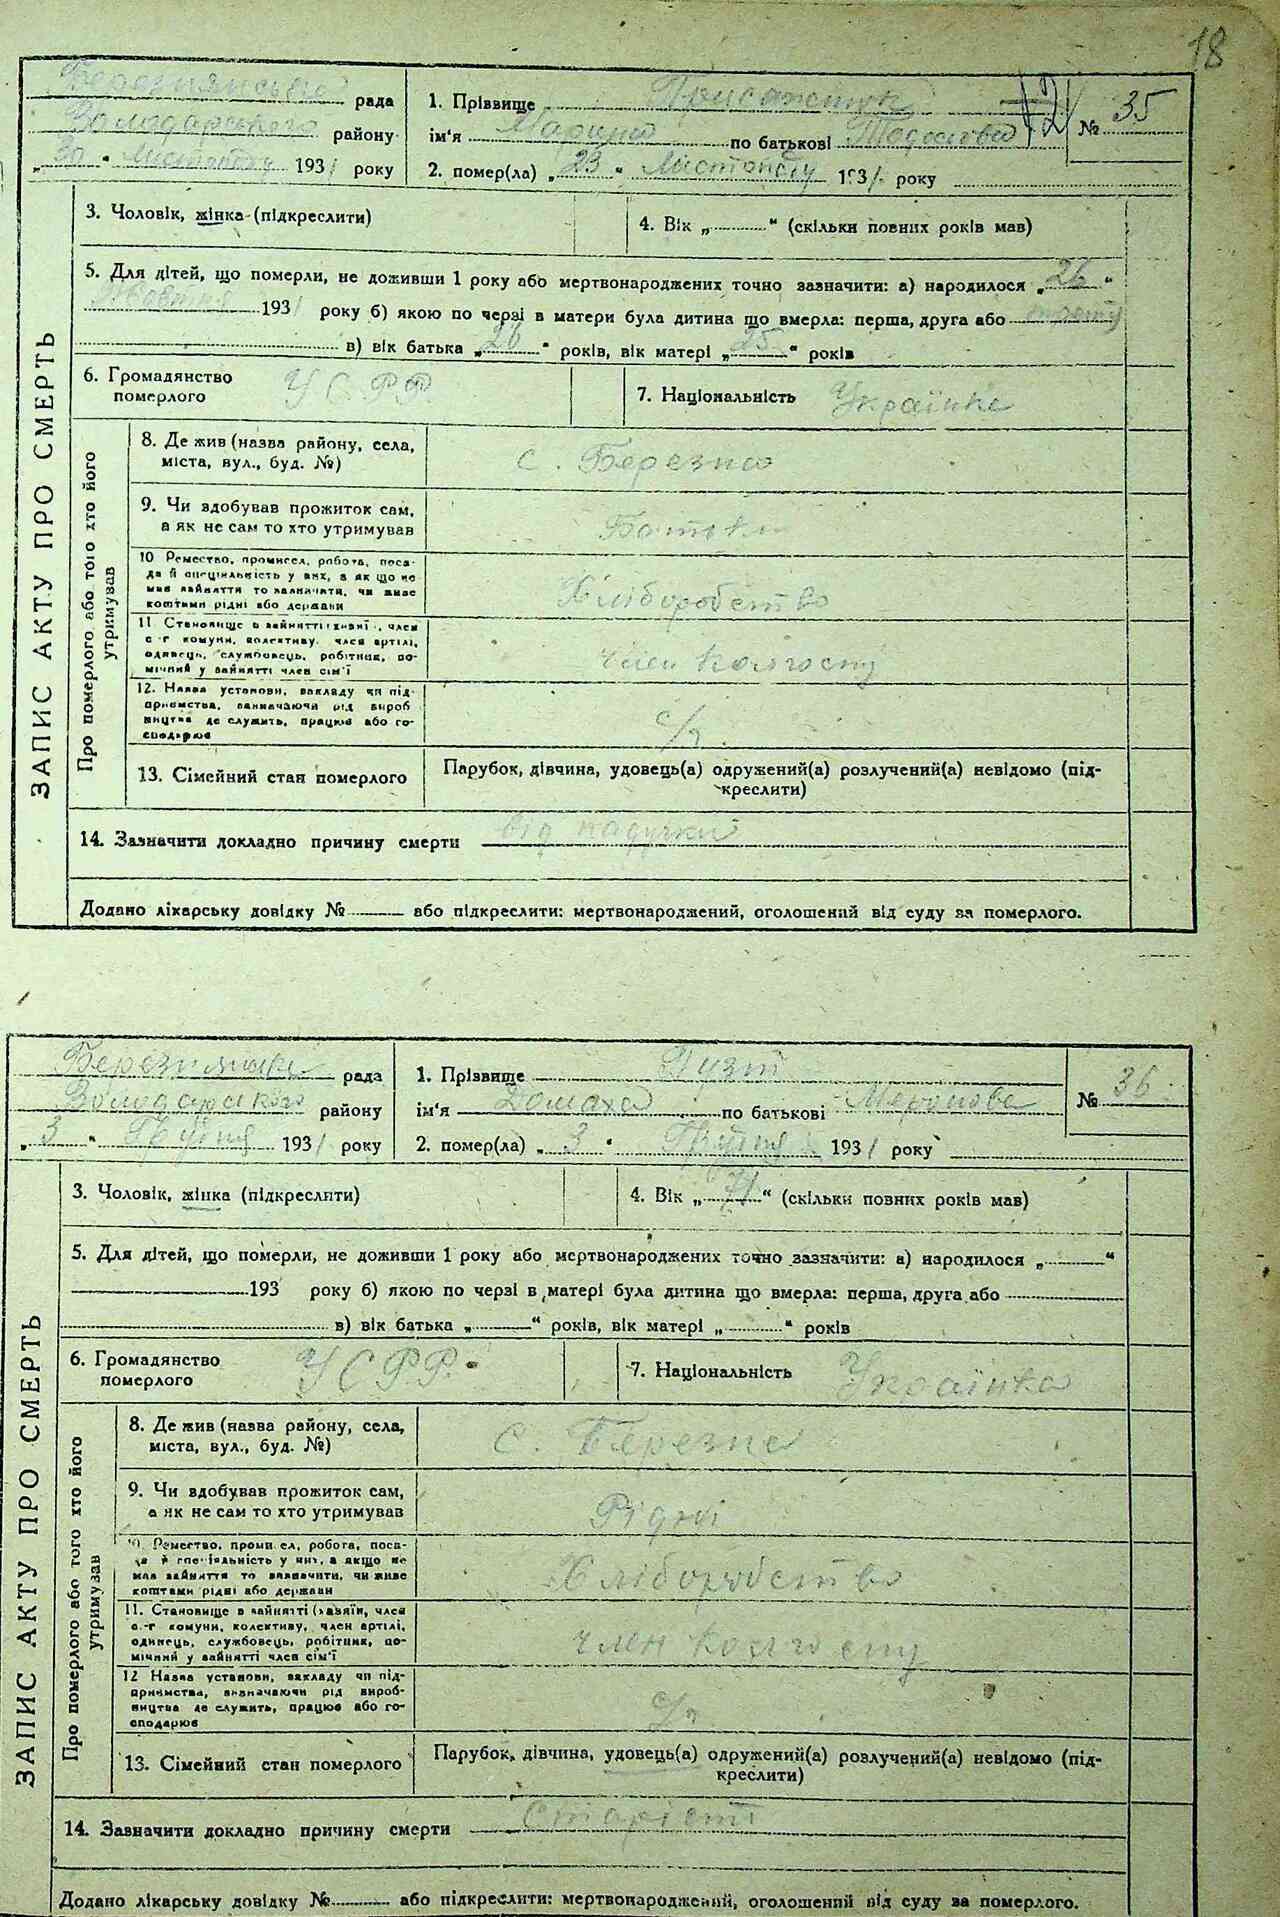 18
Березнянської рада
Володарського району
„30“ Листопаду 1931 року
1. Прізвище Присяжнюк
ім'я Марина по батькові Тодосьова
№ 35
2. помер(ла) „23“ Листопаду 1931 року
ЗАПИС АКТУ ПРО СМЕРТЬ
3. Чоловік, жінка (підкреслити)
4. Вік „ “ (скільки повних років мав)
5. Для дітей, що померли, не доживши 1 року або мертвонароджених точно зазначити: а) народилося „26“
Жовтня 1931 року б) якою по черзі в матери була дитина що вмерла: перша, друга або
в) вік батька „26“ років, вік матері „25“ років
6. Громадянство померлого УСРР
7. Національність Українка
Про померлого або того хто його утримував
8. Де жив (назва району, села,
міста, вул., буд. №)
с. Березна
9. Чи здобував прожиток сам,
а як не сам то хто утримував
Батьки
10 Ремество, промисел, робота, поса-
да й спеціяльність у них, а як що не
мав зайняття то зазначити, чи живе
коштами рідні або держави
Хліборобство
11 Становище в зайнятті (хазяїн, член
с-г комуни, колективу, член артілі,
одинець, службовець, робітник, по-
мічний у зайнятті член сім'ї
член колгоспу
12. Назва установи, закладу чи під-
приємства, зазначаючи рід вироб
ництва де служить, працює або го-
сподарює
с/г
13. Сімейний стан померлого
Парубок, дівчина, удовець(а) одружений(а) розлучений(а) невідомо (під-
креслити)
14. Зазначити докладно причину смерти від падучки
Додано лікарську довідку № або підкреслити: мертвонароджений, оголошений від суду за померлого.
рада
Володарського району
„3“ Грудня 1931 року
1. Прізвище Пузт
ім'я Домаха по батькові Меронова
№ 36
2. помер(ла) „3“ Грудня 1931 року
ЗАПИС АКТУ ПРО СМЕРТЬ
3. Чоловік, жінка (підкреслити)
4. Вік „71“ (скільки повних років мав)
5. Для дітей, що померли, не доживши 1 року або мертвонароджених точно зазначити: а) народилося „ “
193 року б) якою по черзі в матері була дитина що вмерла: перша, друга або
в) вік батька „ “ років, вік матері „ “ років
6. Громадянство померлого УСРР
7. Національність Українка
Про померлого або того хто його утримував
8. Де жив (назва району, села,
міста, вул., буд. №)
с. Березна
9. Чи здобував прожиток сам,
а як не сам то хто утримував
Рідні
10. Ремество, промисел, робота, поса-
да й спеціяльність у них, а якщо не
мав зайняття то зазначити, чи живе
коштами рідні або держави
Хліборобство
11. Становище в зайнятті (хазяїн, член
с.-г комуни, колективу, член артілі,
одинець, службовець, робітник, по-
мічний у зайнятті член сім'ї
член колгоспу
12 Назва установи, закладу чи під-
приємства, зазначаючи рід вироб-
ництва де служить, працює або го-
сподарює
с/г
13. Сімейний стан померлого
Парубок, дівчина, удовець(а) одружений(а) розлучений(а) невідомо (під-
креслити)
14. Зазначити докладно причину смерти Старість
Додано лікарську довідку № або підкреслити: мертвонароджений, оголошений від суду за померлого.